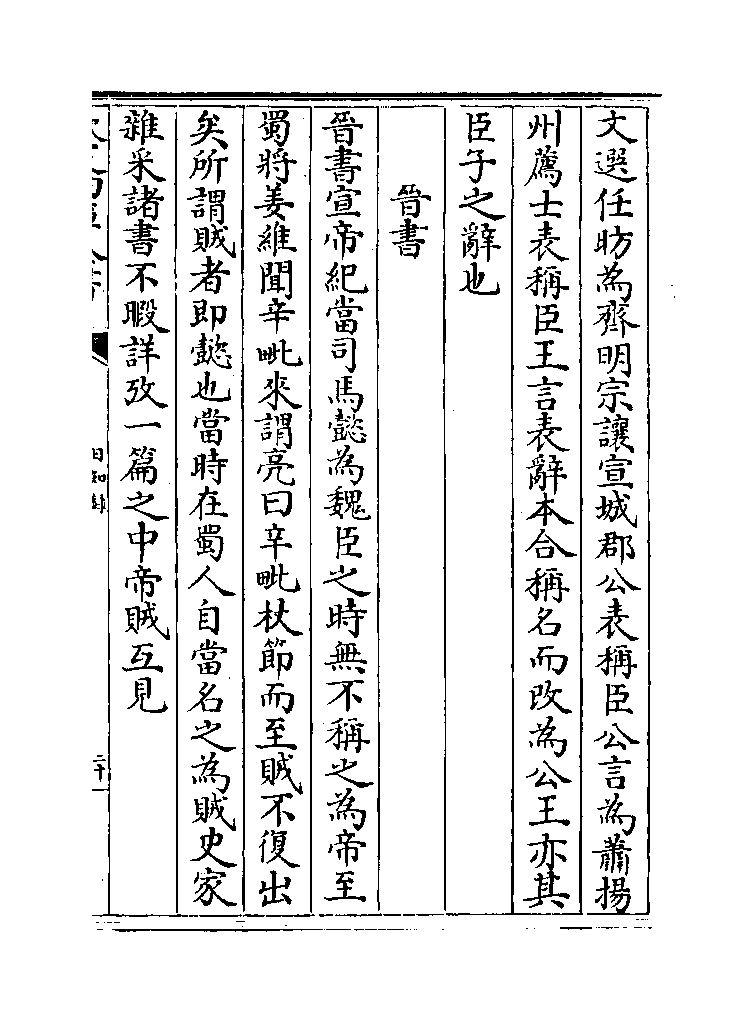 文選任昉為齊明宗讓宣城郡公表稱臣公言為蕭揚
州薦士表稱臣王言表辭本合稱名而改為公王亦其
臣子之辭也
晉書
晉書宣帝紀當司馬懿為魏臣之時無不稱之為帝至
蜀將姜維聞辛毗來謂亮曰辛毗杖節而至賊不復出
矣所謂賊者即懿也當時在蜀人自當名之為賊史家
雜采諸書不暇詳攷一篇之中帝賊互見
日知録